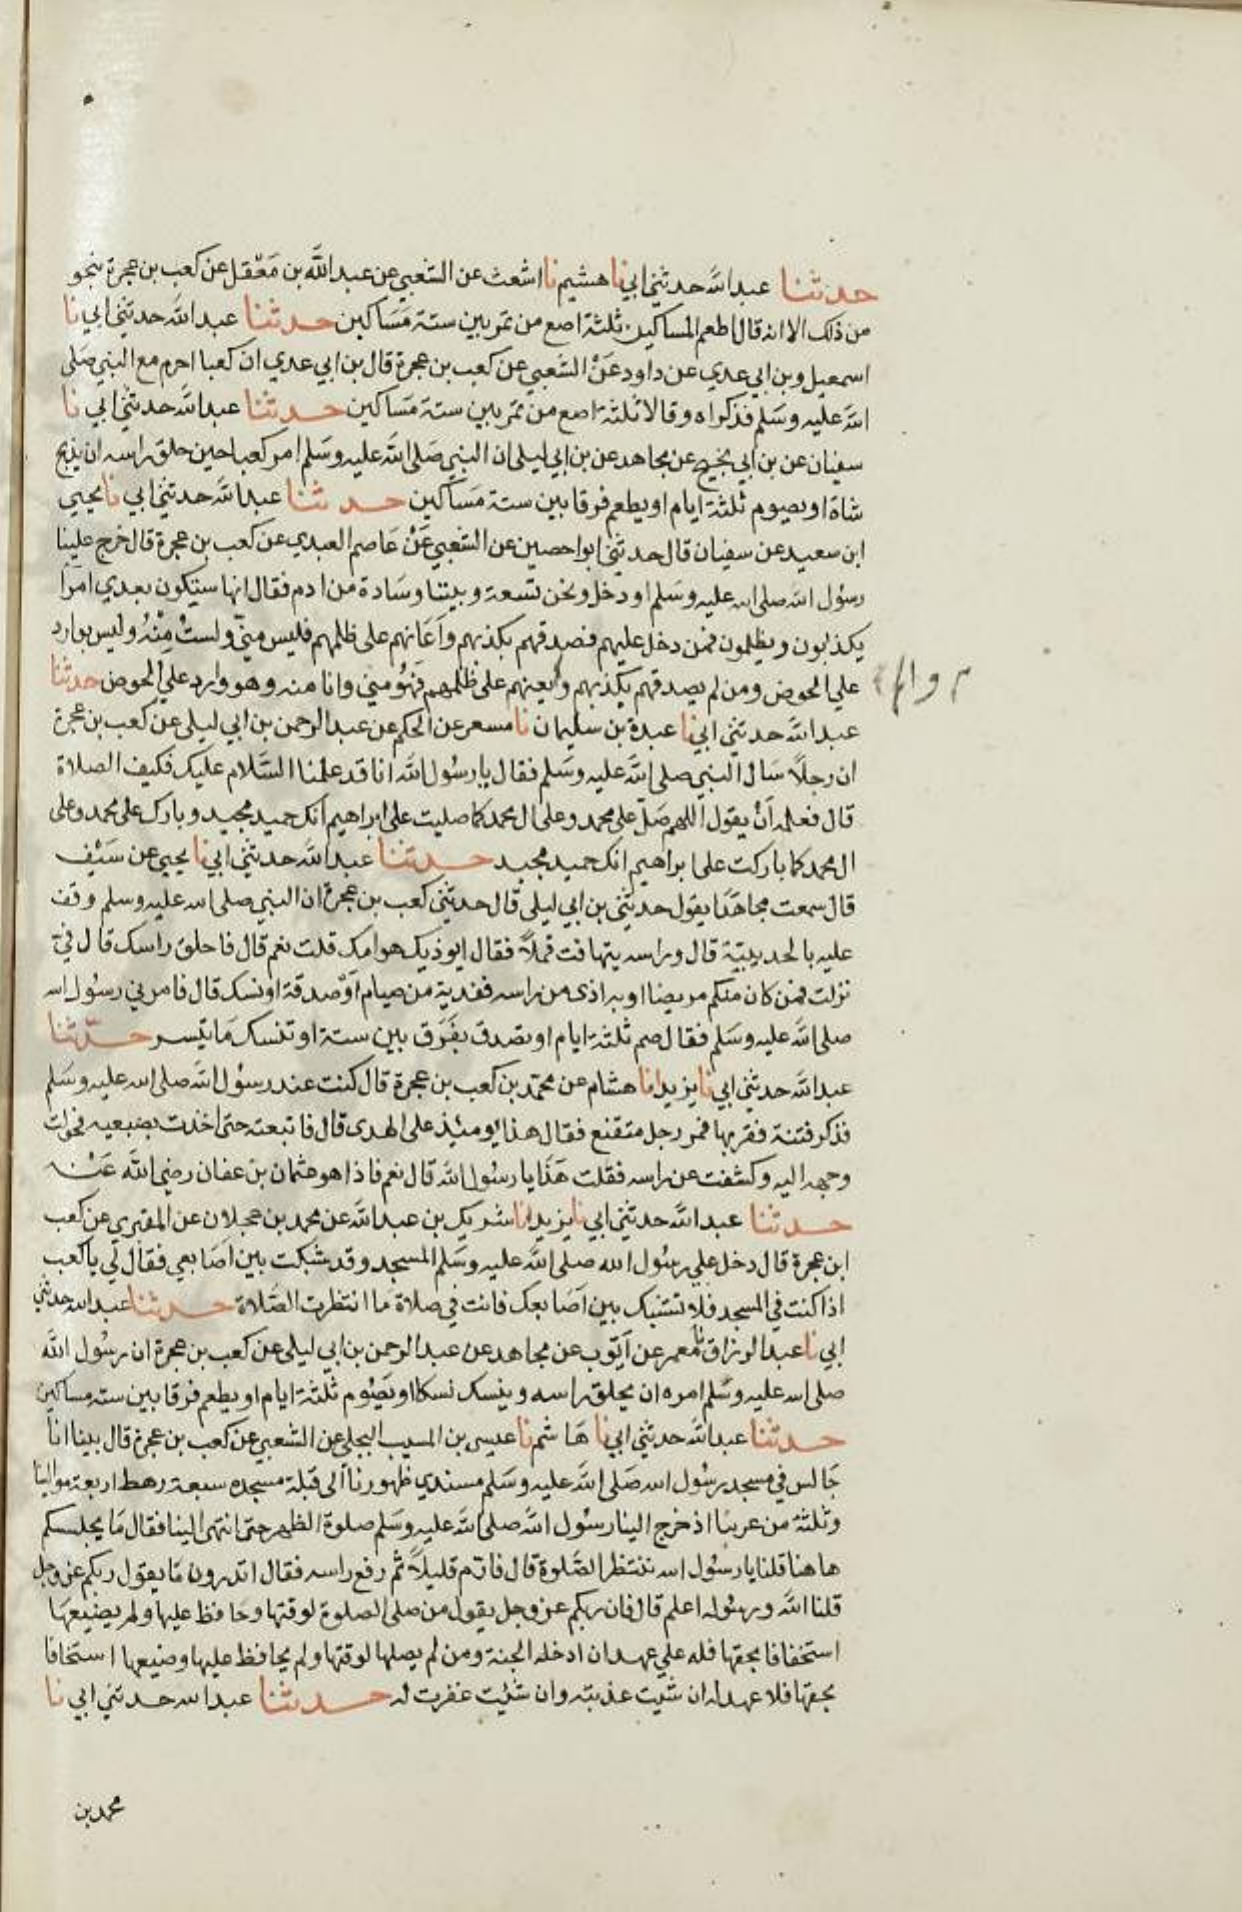 حدثنا عبد الله حدثني ابي نا هشيم نا اشعث عن الشعبي عن عبد الله بن مَعْقل عن كعب بن عجرة بنحو
من ذلك الا انه قال اطعم المساكين ثلثة اصع من تمر بين ستة مَسَاكين حدثنا عبد الله حدثني ابي نا
اسمعيل وبن ابي عدي عن داود عَنْ الشَعبي عن كعب بن عجرة قال بن ابي عدي ان كعبا احرم مع النبي صَلى
الله عليه وسَلم فذكراه وقالا ثلثة اصع من تمر بين ستة مَسَاكين حدثنا عبد الله حدثني ابي نا
سفيان عن بن ابي نجيح عن مجاهد عن بن ابي ليلى ان النبي صَلى الله عليه وسَلم امر كعبا حين حلق راسه ان يذبح
شاة او يصوم ثلثة ايام او يطعم فرقا بين ستة مَسَاكين حدثنا عبد الله حدثني ابي نا يحيى
ابن سعيد عن سفيان قال حدثني ابو احصين عن الشعبي عَنْ عَاصم العبدي عن كعب بن عجرة قال خرج علينا
رسُول الله صلى الله عليه وسَلم او دخل ونحن تسعة وبيننا وسَادة من ادم فقال انها ستكون بعدي امرا
يكذبون ويظلمون فمن دخل عليهم فصدقهم بكذبهم واَعَانهم على ظلمهم فليس منيّ ولستْ مِنْهُ وليس بوارد
علي الحوض ومن لم يصدقهم بكذبهم ويعينهم على ظلمهم فهُو مني وانا منه وهو وارد علي الحوض حدثنا
عبد الله حدثني ابي نا عبدة بن سليمان نا مسعر عن الحكم عن عبد الرحمن بن ابي ليلى عن كعب بن عجرة
ان رجلاً سَال النبي صلى الله عليه وسَلم فقال يا رسُول الله انا قد علمنا السَّلام عليك فكيف الصلاة
قال فعلمه اَنْ يقول اللهم صَلّ على محمد وعلى ال محمد كما صليت على ابراهيم انك حميد مجيد وبارك على محمد وعلى
ال محمد كما باركت على ابراهيم انك حميد مجيد حدثنا عبد الله حدثني ابي نا يحيى عن سَيْف
قال سمعت مجاهَدًا يقول حدثني بن ابي ليلى قال حدثني كعب بن عجرة ان النبي صلى الله عليه وسلم وقف
عليه بالحديبيّة قال وراسه يتهافت قملاً فقال ايوذيك هوامك قلت نعم قال فاحلق راسك قال فيّ
نزلت فمن كان منكم مريضا او به اذى من راسه ففدية من صيام اَوْ صدقة او نسك قال فامرني رسُول الله
صلى الله عليه وسَلم فقال صم ثلثة ايام او تصدق بفَرَق بين ستة او تنسك مَا تيسر حدّثنا
عبد الله حدثني ابي نا يزيد انا هشام عن محمّد بن كعب بن عجرة قال كنت عند رسُول الله صلى الله عليه وسَلم
فذكر فتنة فقربها فمر رجل متقنع فقال هذا يومئذ على الهدى قال فاتبعته حتى اخذت بضبعيه فحولت
وجهه اليه وكشفت عن راسه فقلت هَذَا يا رسُول الله قال نعم فاذا هو عثمان بن عفان رضي الله عَنْه
حدثنا عبد الله حدثني ابي نا يزيد انا شريك بن عبد الله عن محمد بن عجلان عن المقبري عن كعب
ابن عجرة قال دخل علي رسُول الله صلى الله عليه وسَلم المسجد وقد شبكت بين اصَابعي فقال لي يا كعب
اذا كنت في المسجد فلا تشتبك بين اَصَابعك فانت في صلاة مَا انتظرت الصَّلاة حدثنا عبد الله حدثني
ابي نا عبد الرزاق نا معمر عن اَيّوب عن مجاهد عن عبد الرحمن بن ابي ليلى عن كعب بن عجرة ان رسُول الله
صلى الله عليه وسَلم امره ان يحلق راسه وينسك نسكا او يَصُوم ثلثة ايام او يطعم فرقا بين ستة مسَاكين
حدثنا عبد الله حدثني ابي نا هَاشم نا عيسى بن المسيب البجلي عن الشعبي عن كعب بن عجرة قال بينا انا
جَالس في مسجد رسُول الله صَلى الله عليه وسَلم مسندي ظهورنا الى قبلة مسجده سبعة رهط اربعة موالينا
وثلثة من عربنا اذ خرج الينا رسُول الله صلى الله عليه وسَلم صلوة الظهر حتى انتهى الينا فقال مَا يجلسكم
هاهنا قلنا يا رسُول الله ننتظر الصَّلوة قال فارَم قليلاً ثم رفع راسه فقال اتدرون مَا يقول ربكم عز وجل
قلنا الله ورسُوله اعلم قال فان ربكم عز وجل يقول من صلى الصلوة لوقتها وحَافظ عليها ولم يضيعها
استخفافا بحقها فله علي عهد ان ادخله الجنة ومن لم يصلها لوقتها ولم يحافظ عليها وضيعها استخفافا
بحقها فلا عهد له ان شيت عذبته وان شيْت غفرت له حدثنا عبد الله حدثني ابي نا
محمد بن